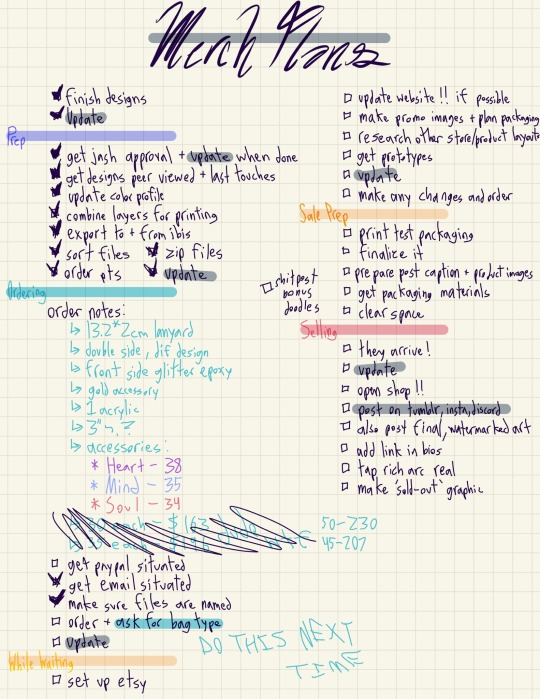 Merch Plans
finish designs
update
Prep
get jnsh approval + update when done
get designs peer viewed + last touches
update color profile
combine layers for printing
export to + from ibis
sort files
zip files
order pts
update
Ordering
order notes:
↳ 13.2*2cm lanyard
↳ double side, dif design
↳ front side glitter epoxy
↳ gold accessory
↳ 1 acrylic
↳ 3"~?
↳ accessories:
* Heart - 38
* Mind - 35
* Soul - 34
each - $163
50-230
45-207
get paypal situated
get email situated
make sure files are named
order + ask for bag type
update
DO THIS NEXT
TIME
While Waiting
set up etsy
update website!! if possible
make promo images + plan packaging
research other store/product layouts
get prototypes
update
make any changes and order
Sale Prep
print test packaging
finalize it
prepare post caption + product images
get packaging materials
clear space
shitpost
bonus
doodles
Selling
they arrive!
update
open shop!!
post on tumblr, insta, discord
also post final, watermarked art
add link in bios
tap rich arc real
make "sold-out" graphic